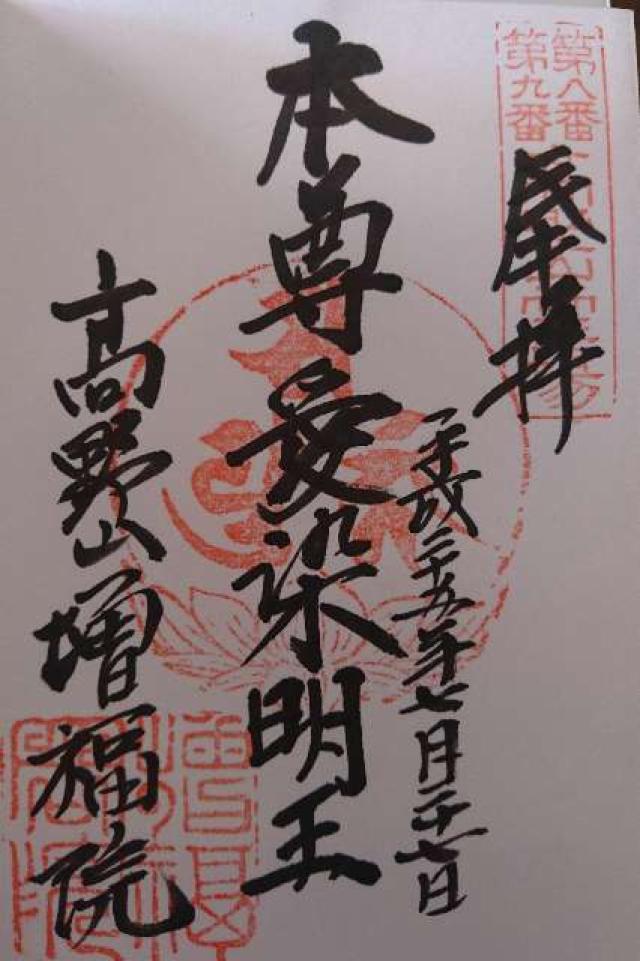 第八番
第九番
奉拝
平成二十五年七月二十七日
本尊愛染明王
高野山増福院